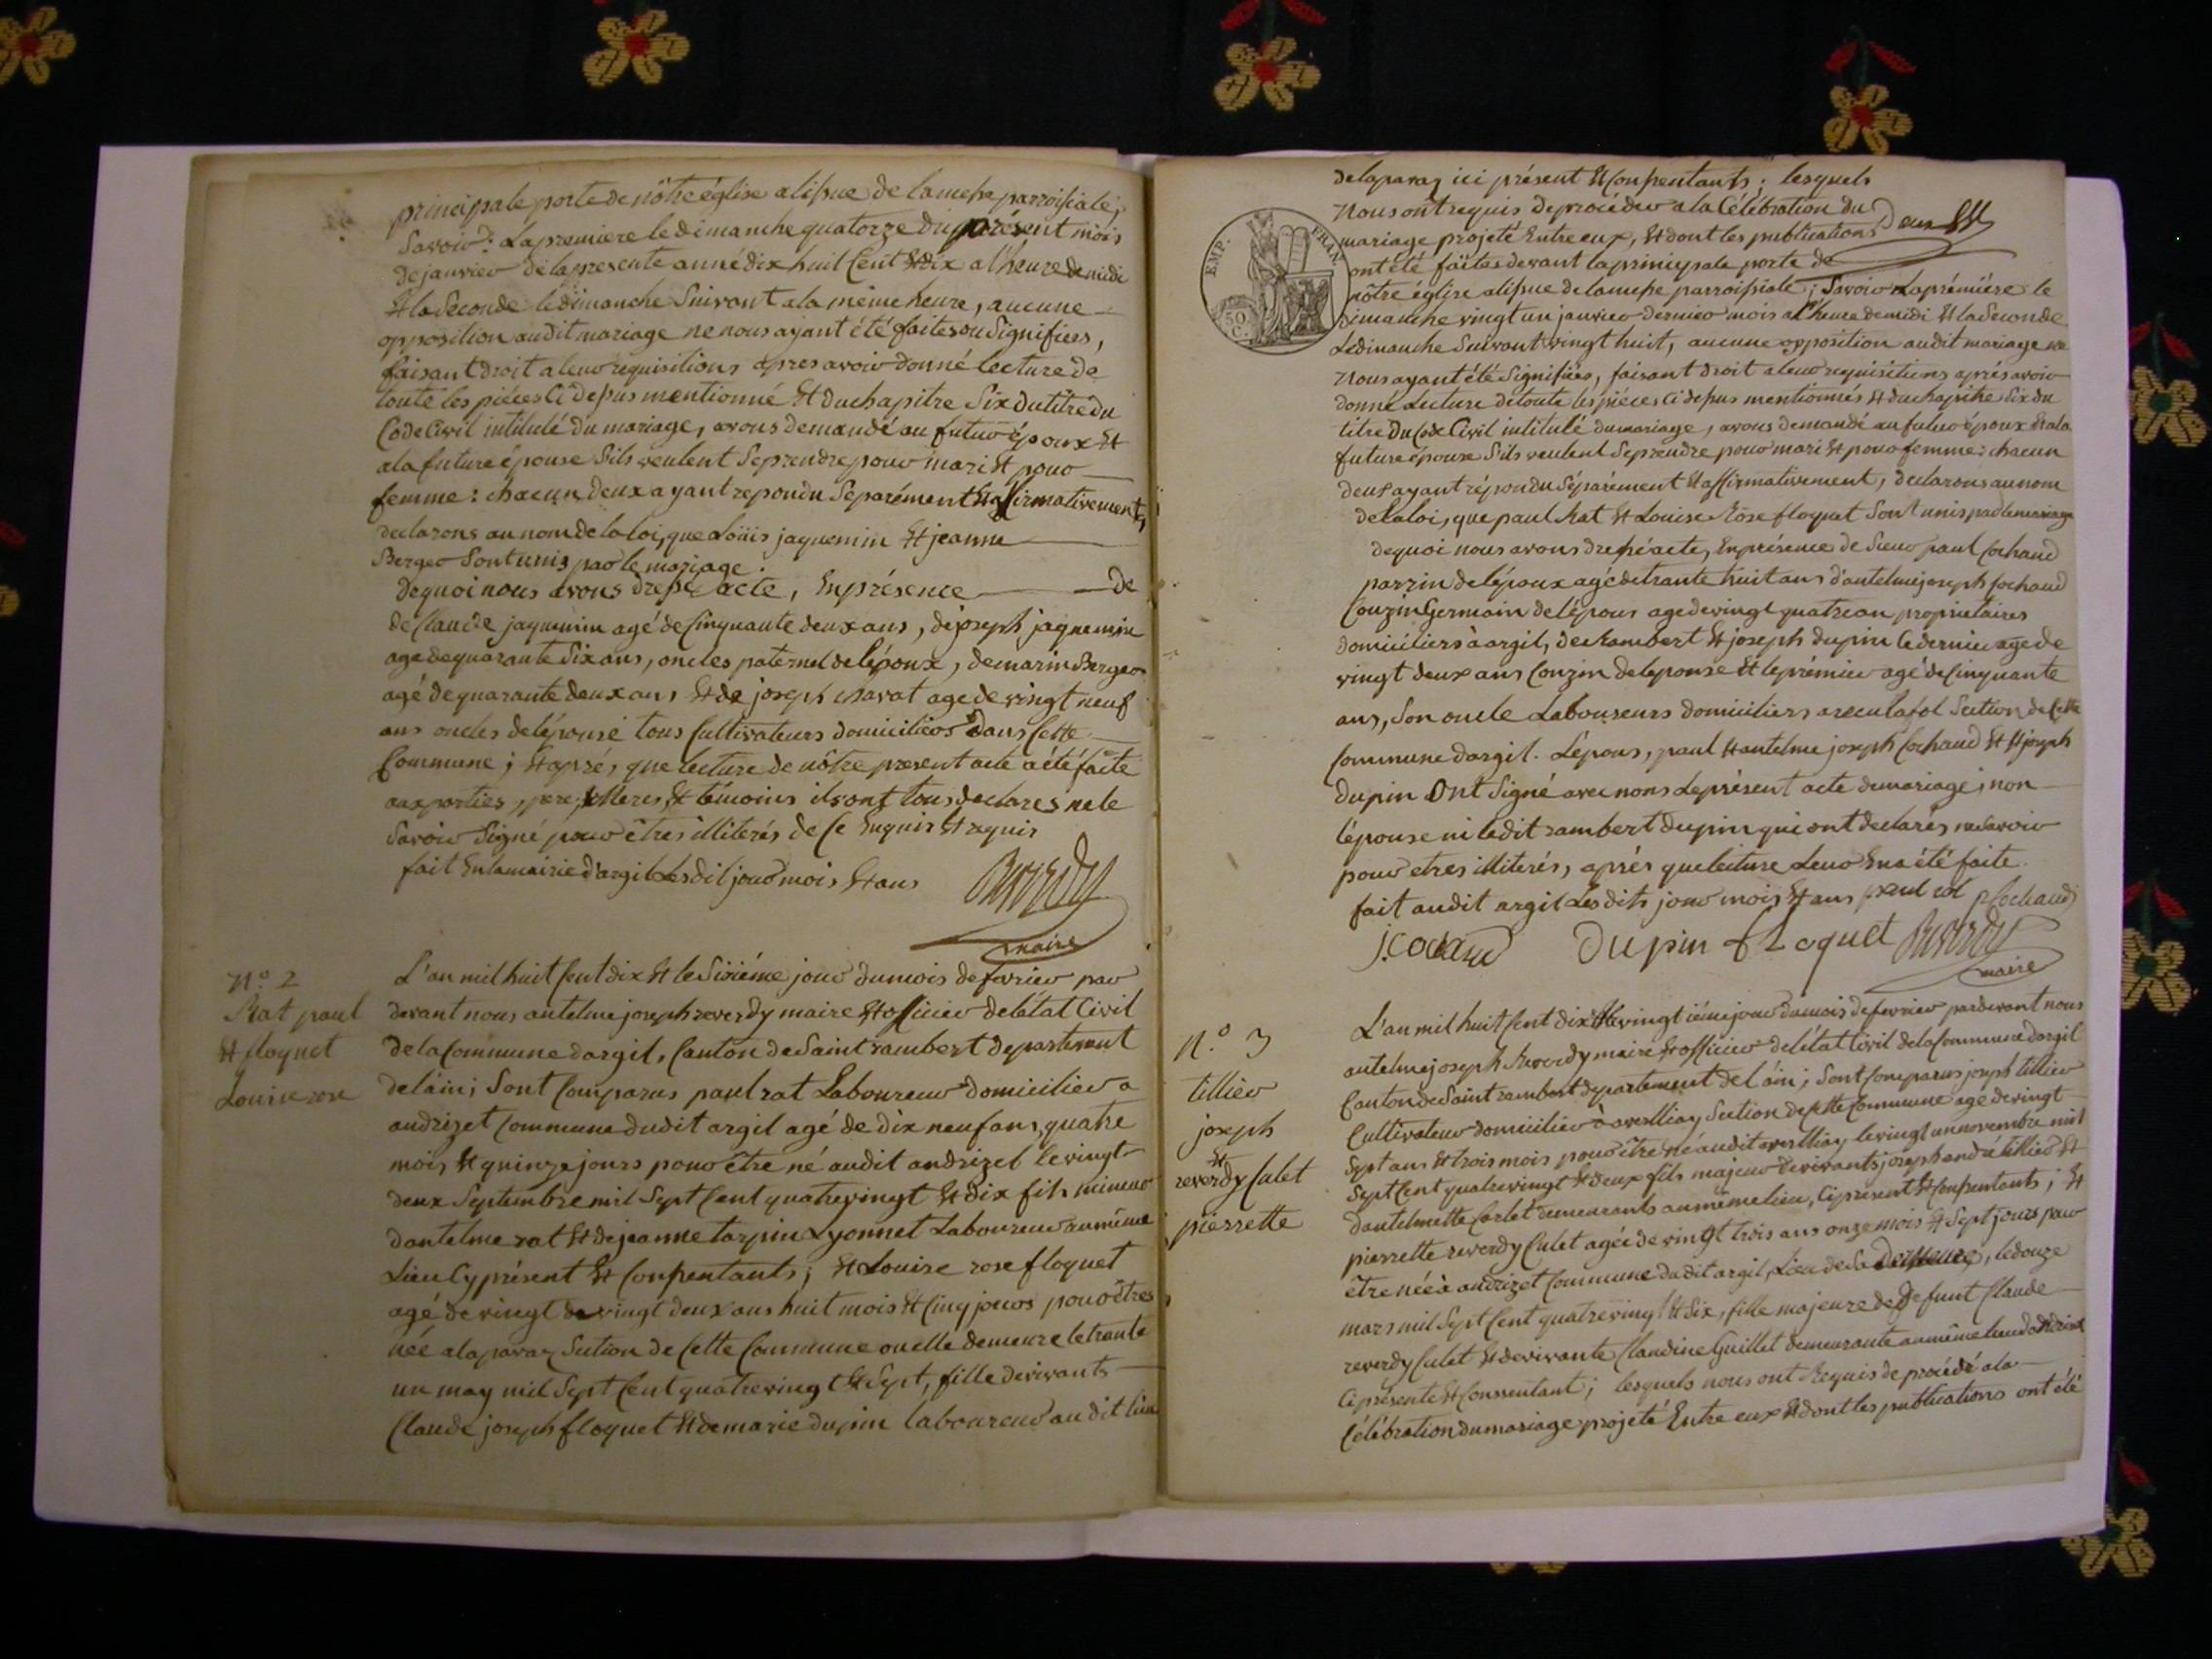 principale porte de nôtre église a lissue de la messe parroissiale;
Savoir: La premiere le dimanche quatorze du présent mois
de janvier de la presente anné dix huit Cent & dix a l'heure de midi
& la Seconde le dimanche Suivant a la même heure, aucune
opposition audit mariage ne nous ayant été faites ou Signifiees,
faisant droit a leur requisitions apres avoir donné lecture de
toute les piéces Ci dessus mentionné & du chapitre Six du titre du
Code Civil intitulé du mariage, avons demandé au futur époux &
a la future épouse S'ils veulent Se prendre pour mari & pour
femme: chacun deux ayant repondu Separément & affirmativement,
declarons au nom de la loi, que Loüis jaquemin & jeanne
Berger Sont unis par le mariage.
de quoi nous avons dressé acte, En présence de
de Claude jaquemin agé de Cinquante deux ans, de joseph jaquemin
age de quarante Six ans, oncles paternel de lépoux, de marin Berger
agé de quarante deux ans & de joseph chavat age de vingt neuf
ans oncles de lépouse tous Cultivateurs domiciliers dans Cette
Commune; & aprés, que lecture de nôtre present acte a été faite
aux parties, pere, & Meres, & témoins ils ont tous declares ne le
Savoir Signé pour êtres illiterés de Ce Enquis & requis
fait En la mairie d'argil Les dit jour mois & ans
Reverdy
maire
N.º 2
Rat paul
& floquet
Louise rose
L'an mil huit Cent dix & le Sixiéme jour du mois de fevrier par
devant nous antelme joseph reverdy maire & officier de létat Civil
de la Commune dargil, Canton de Saint rambert departement
de láin; Sont Comparus paul rat Laboureur domicilier a
andrizet Commune dudit argil agé de dix neuf ans, quatre
mois & quinze jours pour être né audit andrizet le vingt
deux Septembre mil Sept Cent quatrevingt & dix fils mineur
dantelme rat & de jeanne tarpin Lyonnet Laboureur au même
Lieu Cy présent & Consentants; & Louise rose floquet
agé de vingt de vingt deux ans huit mois & Cinq jours pour êtres
née a la paraz Section de Cette Commune ou elle demeure le trante
un may mil Sept Cent quatrevingt & Sept, fille de vivants
Claude joseph floquet & de marie dupin laboureur au dit lieu
EMP. FRAN.
50
C.
de la paraz ici présent & Consentants; lesquels
Nous ont requis de procéder a la Célébration du
mariage projeté Entre eux, & dont les publications
ont été faites devant la principale porte de
nôtre église a lissue de la messe parroissiale; Savoir La prémiere le
dimanche vingt un janvier dernier mois a l'heure de midi & la Seconde
Le dimanche Suivant vingt huit, aucune opposition audit mariage ne
Nous ayant été Signifiées, faisant droit a leur requisitions aprés avoir
donné Lecture de toute les piéces Ci dessus mentionnés & du chapitre Six du
titre Du Code Civil intitulé du mariage, avons demandé au futur époux & a la
future épouse S'ils veulent Se prendre pour mari & pour femme: chacun
deux ayant répondu Séparément & affirmativement, declarons au nom
de la loi, que paul Rat & Louise Rose floquet Sont unis par le mariage
de quoi nous avons dressé acte, En présence de Sieur paul Cochaud
parrin de lépoux agé de trante huit ans d'antelme joseph Cochaud
Couzin Germain de lépous age de vingt quatre an proprietaires
domiciliers à argil, de Rambert & joseph dupin le dernier age de
vingt deux ans Couzin de lepouse & le prémier agé de Cinquante
ans, Son oncle Laboureurs domiciliers Section de Cette
Commune dargil. Lépous, paul & antelme joseph Cochaud & joseph
dupin Ont Signé avec nous Le présent acte de mariage, non
lépouse ni ledit rambert dupin qui ont declarés ne Savoir
pour etres illiterés, aprés que lecture Leur En a été faite.
fait audit argil Les dits jour mois & ans paul rat p Cochaud
j. Cochaud Dupin floquet Reverdy
maire
N.º 3
tillier
joseph
&
reverdy Culet
pierrette
L'an mil huit Cent dix & le vingt iéme jour du mois de fevrier par devant nous
antelme joseph Reverdy maire & officier de létat Civil de la Commune dargil
Canton de Saint rambert departement de láin; Sont Comparus joseph tillier
Cultivateur domicilier à Section de Cette Commune age de vingt
Sept ans & trois mois pour être né audit le vingt un novembre mil
Sept Cent quatrevingt & deux fils majeur de vivants joseph andré tillier &
dantelmette Carlet demeurants au même lieu, Ci présent & Consentants; &
pierrette reverdy Culet agée de vingt trois ans onze mois & Sept jours pour
être née à andrizet Commune dudit argil, Lieu de Sa Demeure, le douze
mars mil Sept Cent quatrevingt & Six, fille majeure de Defunt Claude
reverdy Culet & de vivante Claudine Guillet demeurante au même lieu dandrizet
Ci présente & Consentant; lesquels nous ont Requis de procédé a la
Célébration du mariage projeté Entre eux & dont les publications ont été